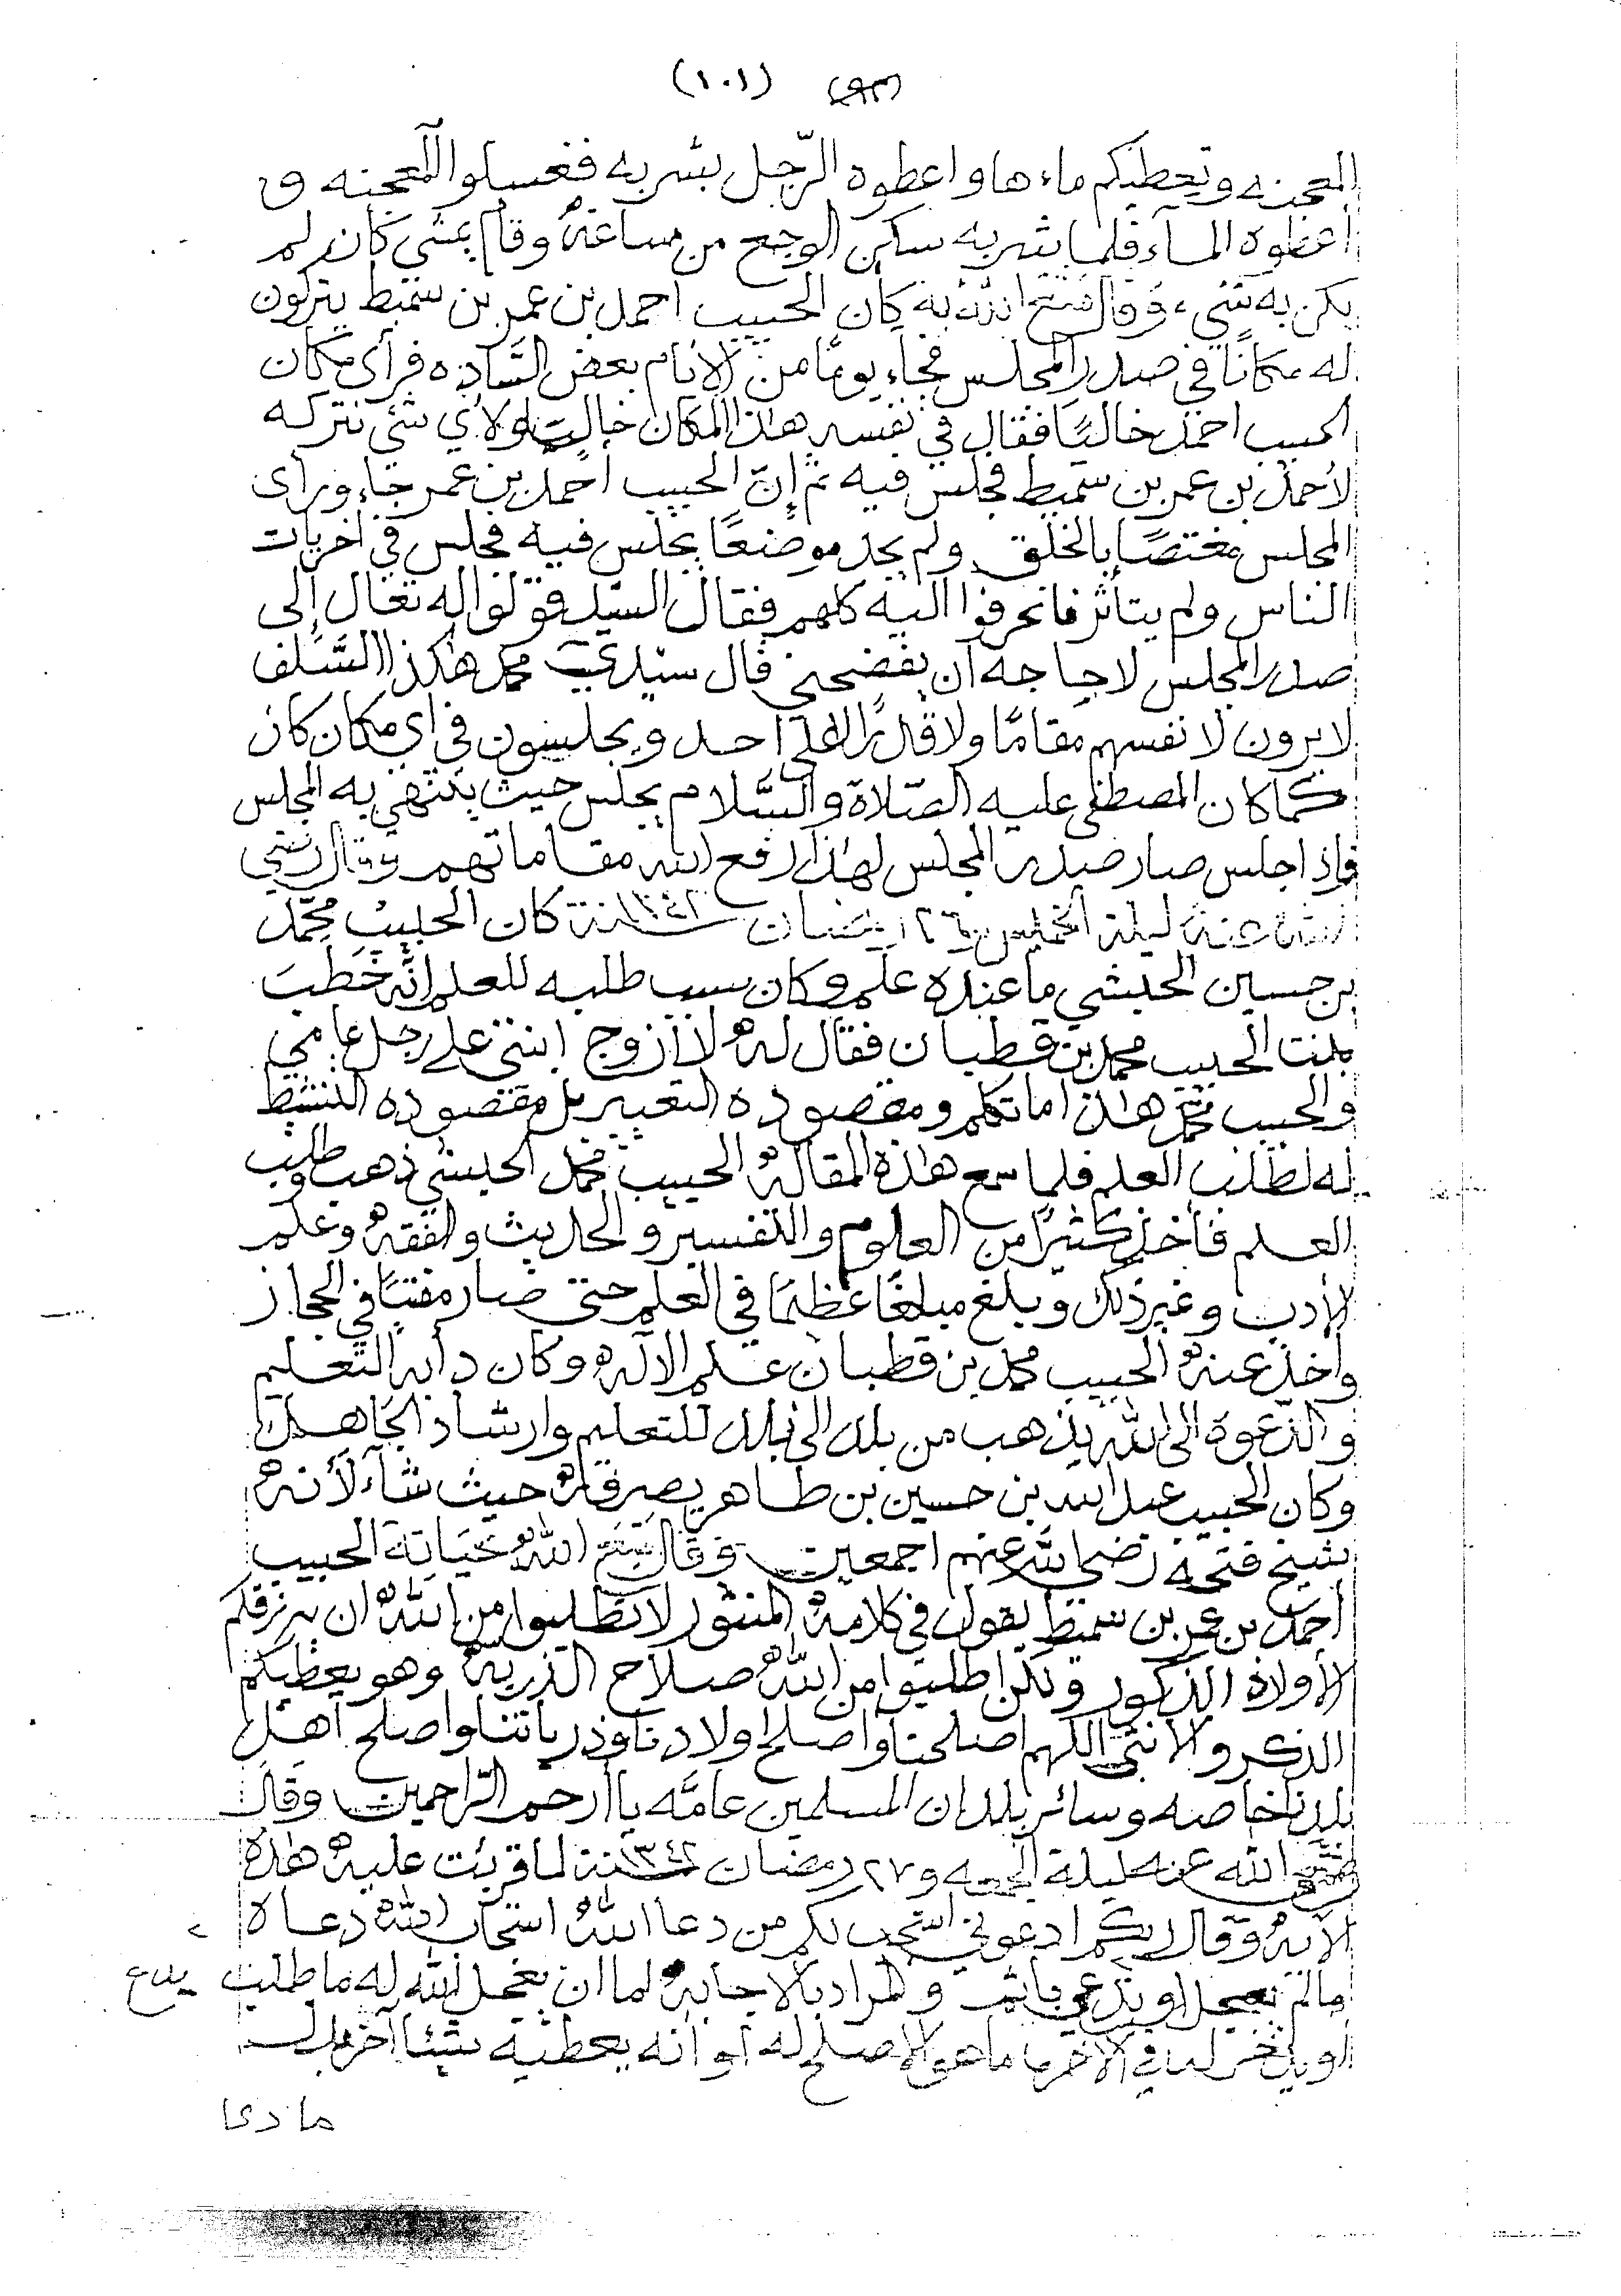 (٩٣) (١٠١)
المعجنه وتعطيكم ماءها واعطوه الرّجل يشربه فغسلوا المعجنه و
اعطوه المآء فلما شربه سكن الوجع من ساعته وقام يمشي كان لم
يكن به شيء، وقال متع الله به كان الحبيب احمد بن عمر بن سميط يتركون
له مكانًا في صدر المجلس فجاء يومًا من الأيام بعض السَّاده فرأى مكان
الحبيب احمد خاليًا فقال في نفسه هذا المكان خالي ولأي شئ نتركه
لأحمد بن عمر بن سميط فجلس فيه ثم إنّ الحبيب احمد بن عمر جاء ورأى
المجلس مغتصًا بالخلق ولم يجد موضعًا يجلس فيه فجلس في أخريات
الناس ولم يتأثر فانحرفوا اليه كلهم فقال السيّد قولوا له تعال إلى
صدر المجلس لا حاجه ان يفضحني قال سيدي محمد هكذا السَّلف
لا يرون لأنفسهم مقامًا ولا قدرًا على احد ويجلسون في اي مكان كان
كما كان المصطفى عليه الصّلاة والسَّلام يجلس حيث ينتهي به المجلس
فإذا جلس صار صدر المجلس لهذا رفع الله مقاماتهم وقال رضي
الله عنه ليلة الخميس ٢٦ رمضان سنة ١٣٤٢ كان الحبيب محمّد
بن حسين الحبشي ما عنده علم وكان سبب طلبه للعلم انَّه خَطَبَ
بنت الحبيب محمد بن قطبان فقال له لا أزوج ابنتي على رجل عامي
والحبيب محمد هذا ما تكلم ومقصوده التعيير بل مقصوده التنشيط
له لطلب العلم فلما سمع هذه المقالة الحبيب محمد الحبشي ذهب وطلب
العلم فأخذ كثيرًا من العلوم والتفسير والحديث والفقه وعلم
الأدب وغير ذلك وبلغ مبلغًا عظيمًا في العلم حتى صار مفتيًا في الحجاز
وأخذ عنه الحبيب محمد بن قطبان علم الآلة وكان دأبه التعليم
والدّعوة الى الله يذهب من بلد الى بلد للتعليم وارشاد الجاهل
وكان الحبيب عبد الله بن حسين بن طاهر يصرفه حيث شآء لأنه
شيخ فتحه رضي الله عنهم اجمعين وقال متع الله بحياته الحبيب
أحمد بن عمر بن سميط يقول في كلامه المنثور لا تطلبوا من الله ان يرزقكم
الأولاد الذكور ولكن اطلبوا من الله صلاح الذريه وهو يعطيكم
الذكر والانثى اللهم اصلحنا واصلح اولادنا وذرياتنا واصلح اهل
بلدنا خاصه وسائر بلدان المسلمين عامَّه يا أرحم الرّاحمين وقال
رضي الله عنه ليلة الجمعه و٢٧ رمضان سنة ١٣٤٢ لما قرئت عليه هذه
الآيه وقال ربكم ادعوني استجب لكم من دعا الله استجاب الله دعاه
مالم يعجل او يدعي باثم والمراد بالاجابة اما ان يعجل الله له ما طلب يدع
او يدّخر له في الآخره ما هو الاصلح له أو أنه يعطيه شيئا آخر بدل
ما دعا